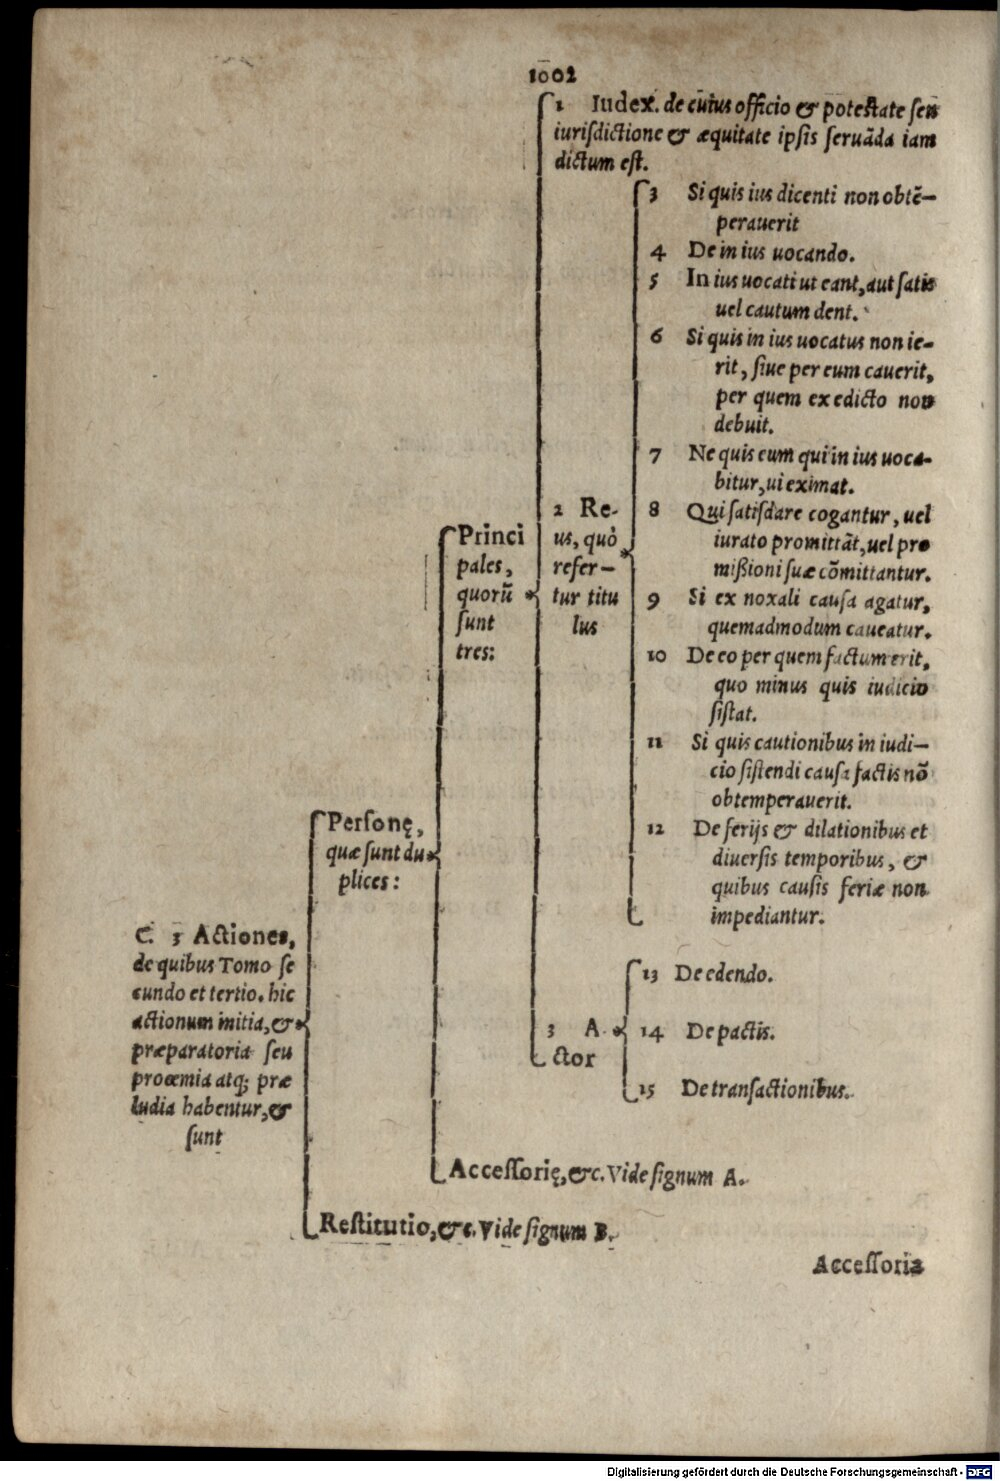 1002
1 Iudex. de cuius officio & potestate seu
iurisdictione & æquitate ipsis seruãda iam
dictum est.
3 Si quis ius dicenti non obtẽ-
perauerit
4 De in ius uocando.
5 In ius uocati ut eant, aut satis
uel cautum dent.
6 Si quis in ius uocatus non ie-
rit, siue per eum cauerit,
per quem ex edicto non
debuit.
7 Ne quis eum qui in ius uoca-
bitur, ui eximat.
2 Re-
us, quò
refer-
tur titu
lus
8 Qui satisdare cogantur, uel
iurato promittãt, uel pro
mißioni suæ cõmittantur.
9 Si ex noxali causa agatur,
quemadmodum caueatur.
10 De eo per quem factum erit,
quo minus quis iudicio
sistat.
11 Si quis cautionibus in iudi-
cio sistendi causa factis nõ
obtemperauerit.
12 De ferijs & dilationibus et
diuersis temporibus, &
quibus causis feriæ non
impediantur.
Princi
pales,
quorũ
sunt
tres:
Personę,
quæ sunt du
plices:
C. 3 Actiones,
de quibus Tomo se
cundo et tertio. hic
actionum initia, &
præparatoria seu
proœmia atq; præ
ludia habentur, &
sunt
3 A
ctor
13 De edendo.
14 De pactis.
15 De transactionibus.
Accessorię, &c. Vide signum A.
Restitutio, &c. Vide signum B.
Accessoria
Digitalisierung gefördert durch die Deutsche Forschungsgemeinschaft - DFG